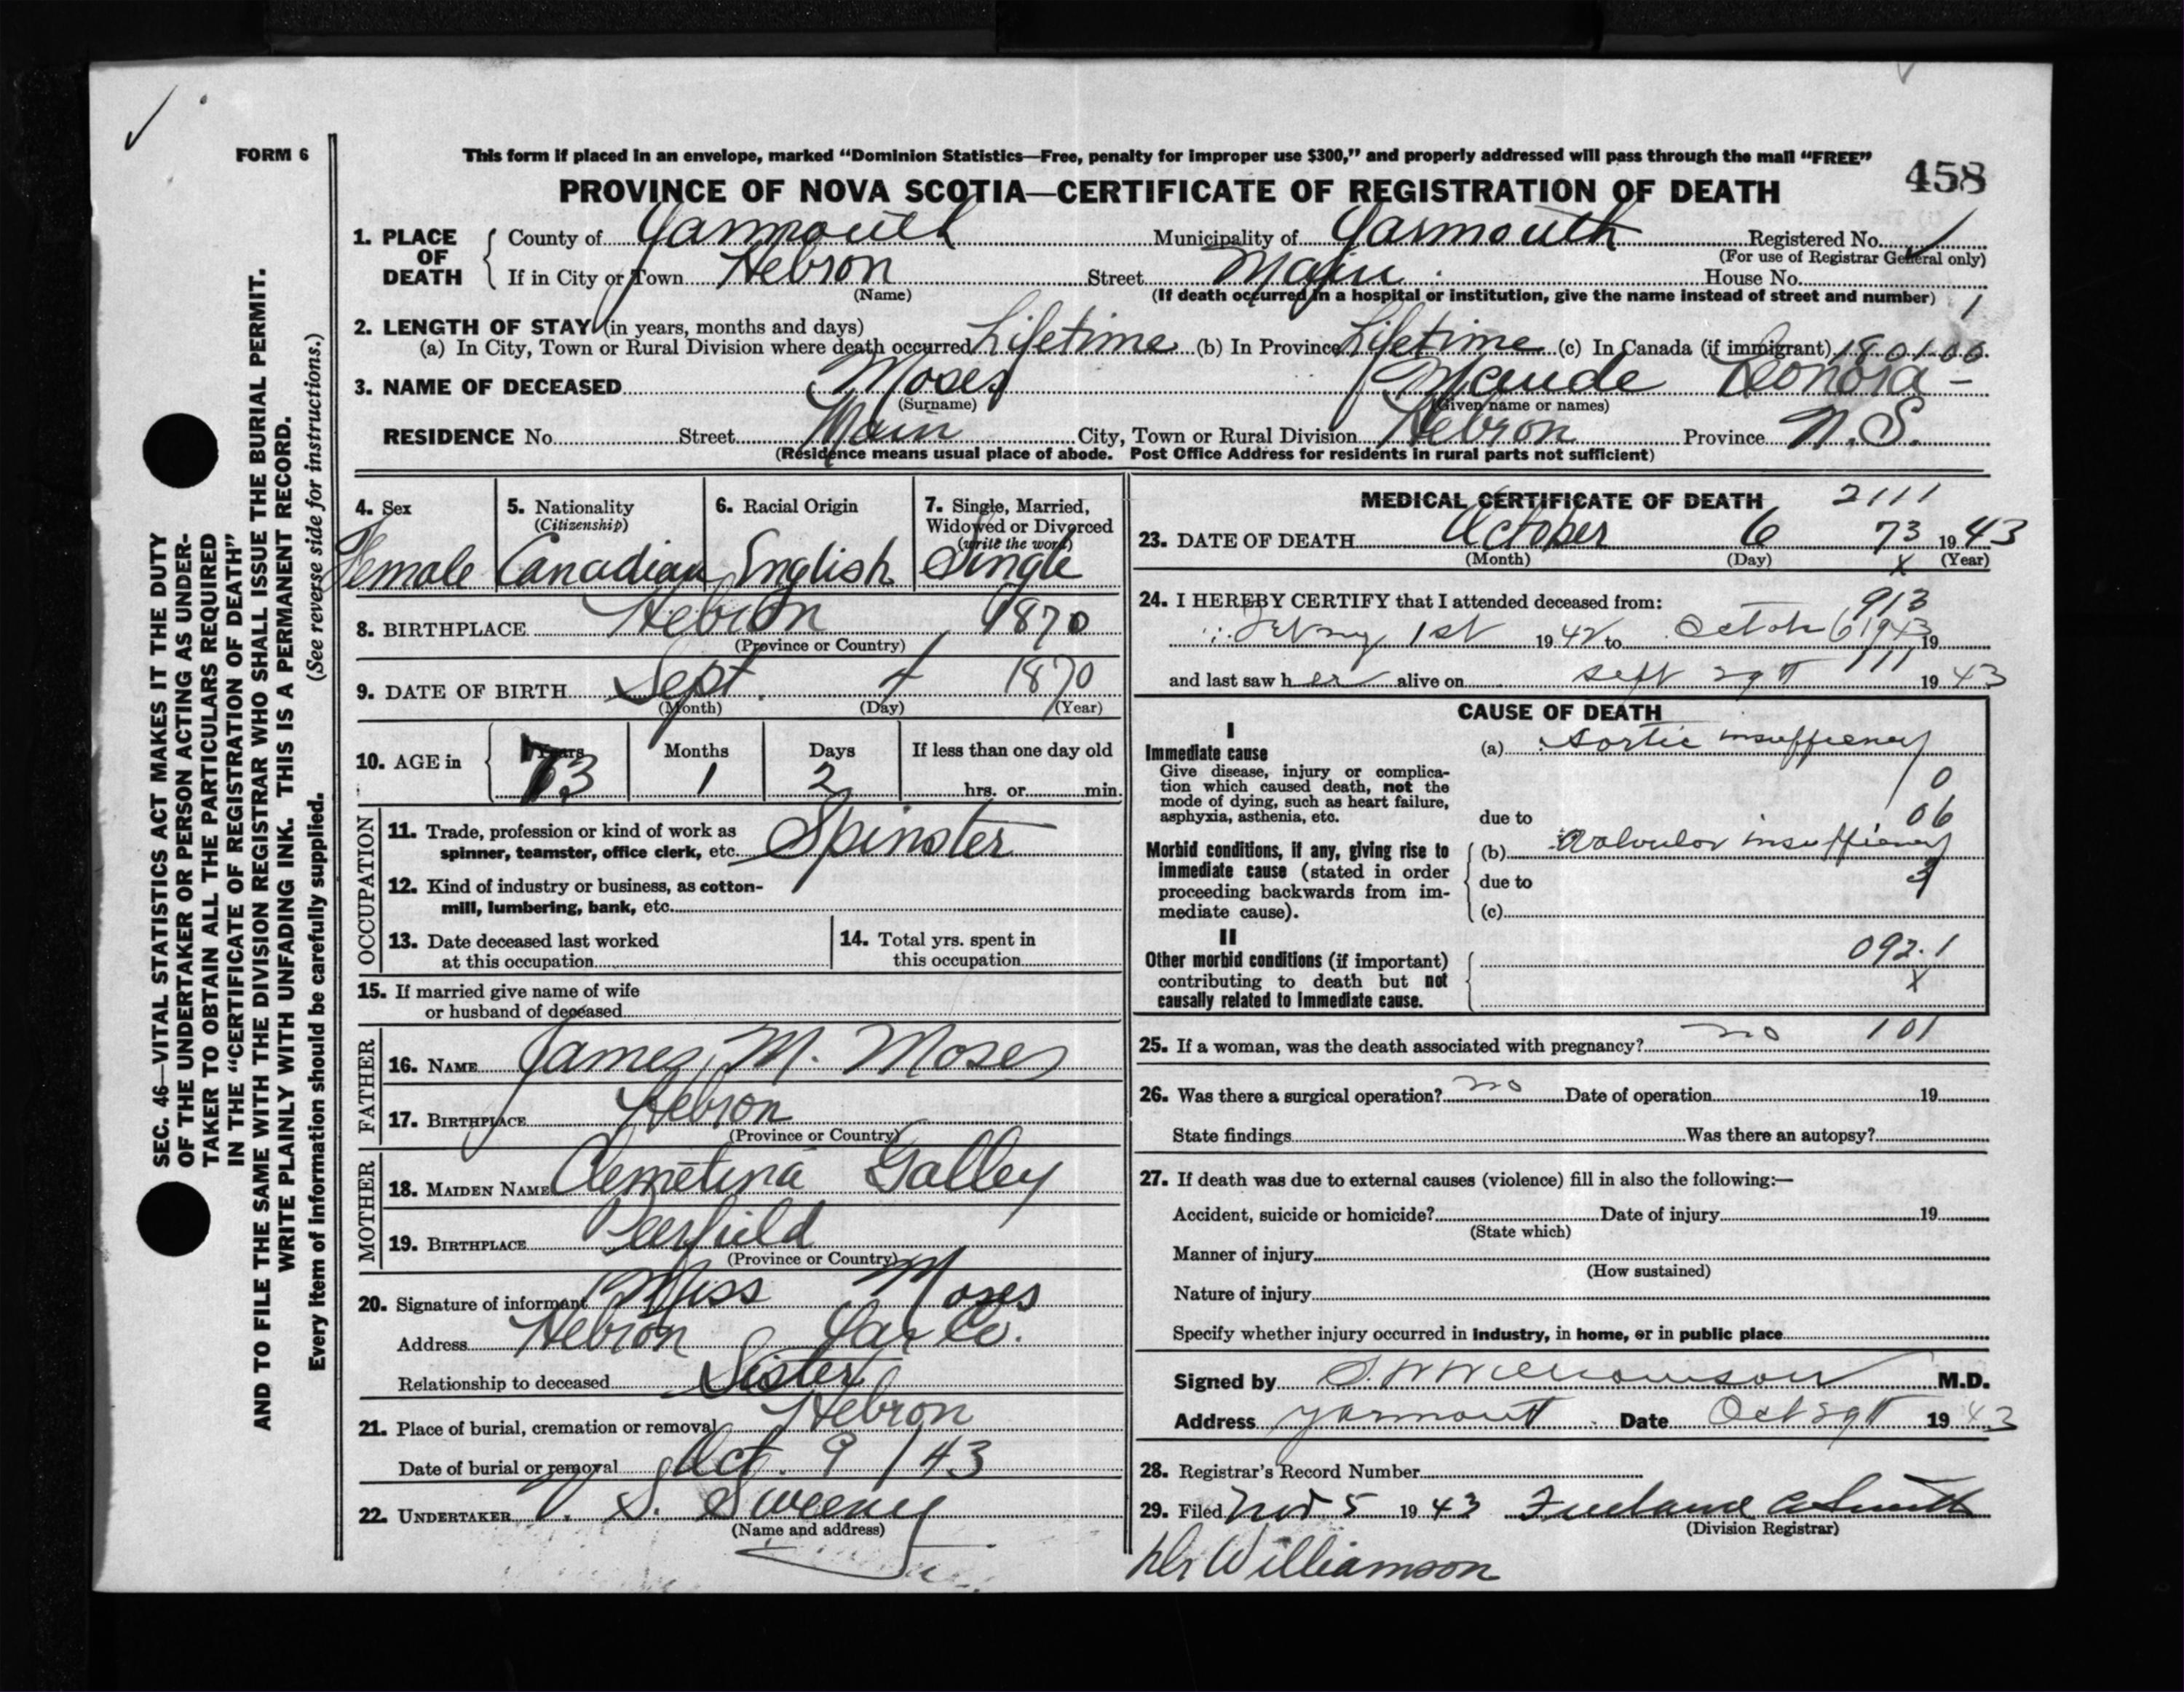 FORM 6
This form if placed in an envelope, marked “Dominion Statistics—Free, penalty for improper use $300,” and properly addressed will pass through the mail “FREE”
458
PROVINCE OF NOVA SCOTIA—CERTIFICATE OF REGISTRATION OF DEATH
SEC. 46—VITAL STATISTICS ACT MAKES IT THE DUTY
OF THE UNDERTAKER OR PERSON ACTING AS UNDER-
TAKER TO OBTAIN ALL THE PARTICULARS REQUIRED
IN THE “CERTIFICATE OF REGISTRATION OF DEATH”
AND TO FILE THE SAME WITH THE DIVISION REGISTRAR WHO SHALL ISSUE THE BURIAL PERMIT.
WRITE PLAINLY WITH UNFADING INK. THIS IS A PERMANENT RECORD.
Every item of information should be carefully supplied. (See reverse side for instructions.)
1. PLACE OF DEATH
County of Yarmouth Municipality of Yarmouth Registered No.
(For use of Registrar General only)
If in City or Town Hebron Street Main House No.
(Name) (If death occurred in a hospital or institution, give the name instead of street and number) 1
2. LENGTH OF STAY (in years, months and days)
(a) In City, Town or Rural Division where death occurred Lifetime (b) In Province Lifetime (c) In Canada (if immigrant) 180100
3. NAME OF DECEASED Moses Maude Leonora -
(Surname) (Given name or names)
RESIDENCE No. Street Main City, Town or Rural Division Hebron Province N.S.
(Residence means usual place of abode. Post Office Address for residents in rural parts not sufficient)
4. Sex
Female
5. Nationality
(Citizenship)
Canadian
6. Racial Origin
English
7. Single, Married,
Widowed or Divorced
(write the word)
Single
8. BIRTHPLACE Hebron 1870
(Province or Country)
9. DATE OF BIRTH Sept. 4 1870
(Month) (Day) (Year)
10. AGE in Years Months Days If less than one day old
73 1 2 hrs. or min.
OCCUPATION
11. Trade, profession or kind of work as
spinner, teamster, office clerk, etc. Spinster
12. Kind of industry or business, as cotton-
mill, lumbering, bank, etc.
13. Date deceased last worked
at this occupation
14. Total yrs. spent in
this occupation
15. If married give name of wife
or husband of deceased
FATHER
16. NAME James M. Moses
17. BIRTHPLACE Hebron
(Province or Country)
MOTHER
18. MAIDEN NAME Clemetina Galley
19. BIRTHPLACE Deerfield
(Province or Country)
20. Signature of informant Miss Moses
Address Hebron Yar Co.
Relationship to deceased Sister
21. Place of burial, cremation or removal Hebron
Date of burial or removal Oct. 9 / 43
22. UNDERTAKER V. S. Sweeney
(Name and address)
MEDICAL CERTIFICATE OF DEATH 2111
23. DATE OF DEATH October 6 73 1943
(Month) (Day) x (Year)
24. I HEREBY CERTIFY that I attended deceased from: 913
1st 1942 to 6 1943 19
111
and last saw her alive on Sept 29th 1943
CAUSE OF DEATH
I
Immediate cause
Give disease, injury or complica-
tion which caused death, not the
mode of dying, such as heart failure,
asphyxia, asthenia, etc.
(a) Aortic insufficiency
0
due to 06
Morbid conditions, if any, giving rise to
immediate cause (stated in order
proceeding backwards from im-
mediate cause).
(b) Valvular insufficiency
due to 3
(c)
II
Other morbid conditions (if important)
contributing to death but not
causally related to immediate cause.
092.1
x
25. If a woman, was the death associated with pregnancy? no 101
26. Was there a surgical operation? no Date of operation 19
State findings Was there an autopsy?
27. If death was due to external causes (violence) fill in also the following:—
Accident, suicide or homicide? Date of injury 19
(State which)
Manner of injury
(How sustained)
Nature of injury
Specify whether injury occurred in industry, in home, or in public place
Signed by S. W Williamson M.D.
Address Yarmouth Date Oct 29th 1943
28. Registrar's Record Number
29. Filed Nov 5 1943 Freeland A Smith
(Division Registrar)
Dr Williamson